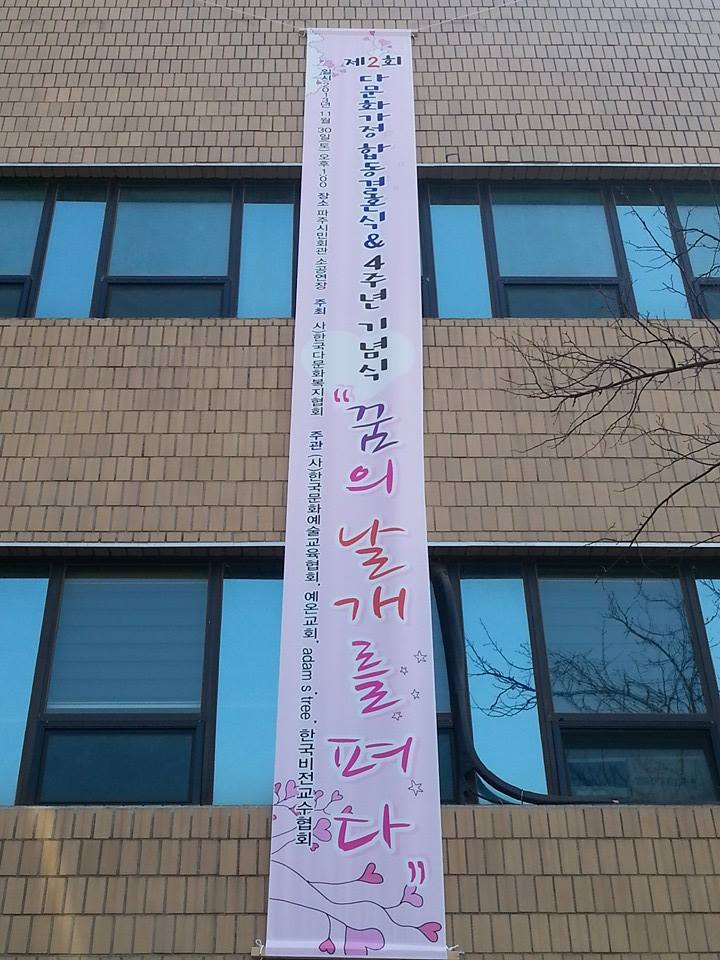 제2회
다문화가정 합동결혼식 & 4주년 기념식
"꿈의 날개를 펴다"
일시 2013년 11월 30일(토) 오후1:00 장소 파주시민회관 소공연장 주최 사)한국다문화복지협회 주관 (사)한국문화예술교육협회, 예온교회, adam s tree, 한국비전교수협회